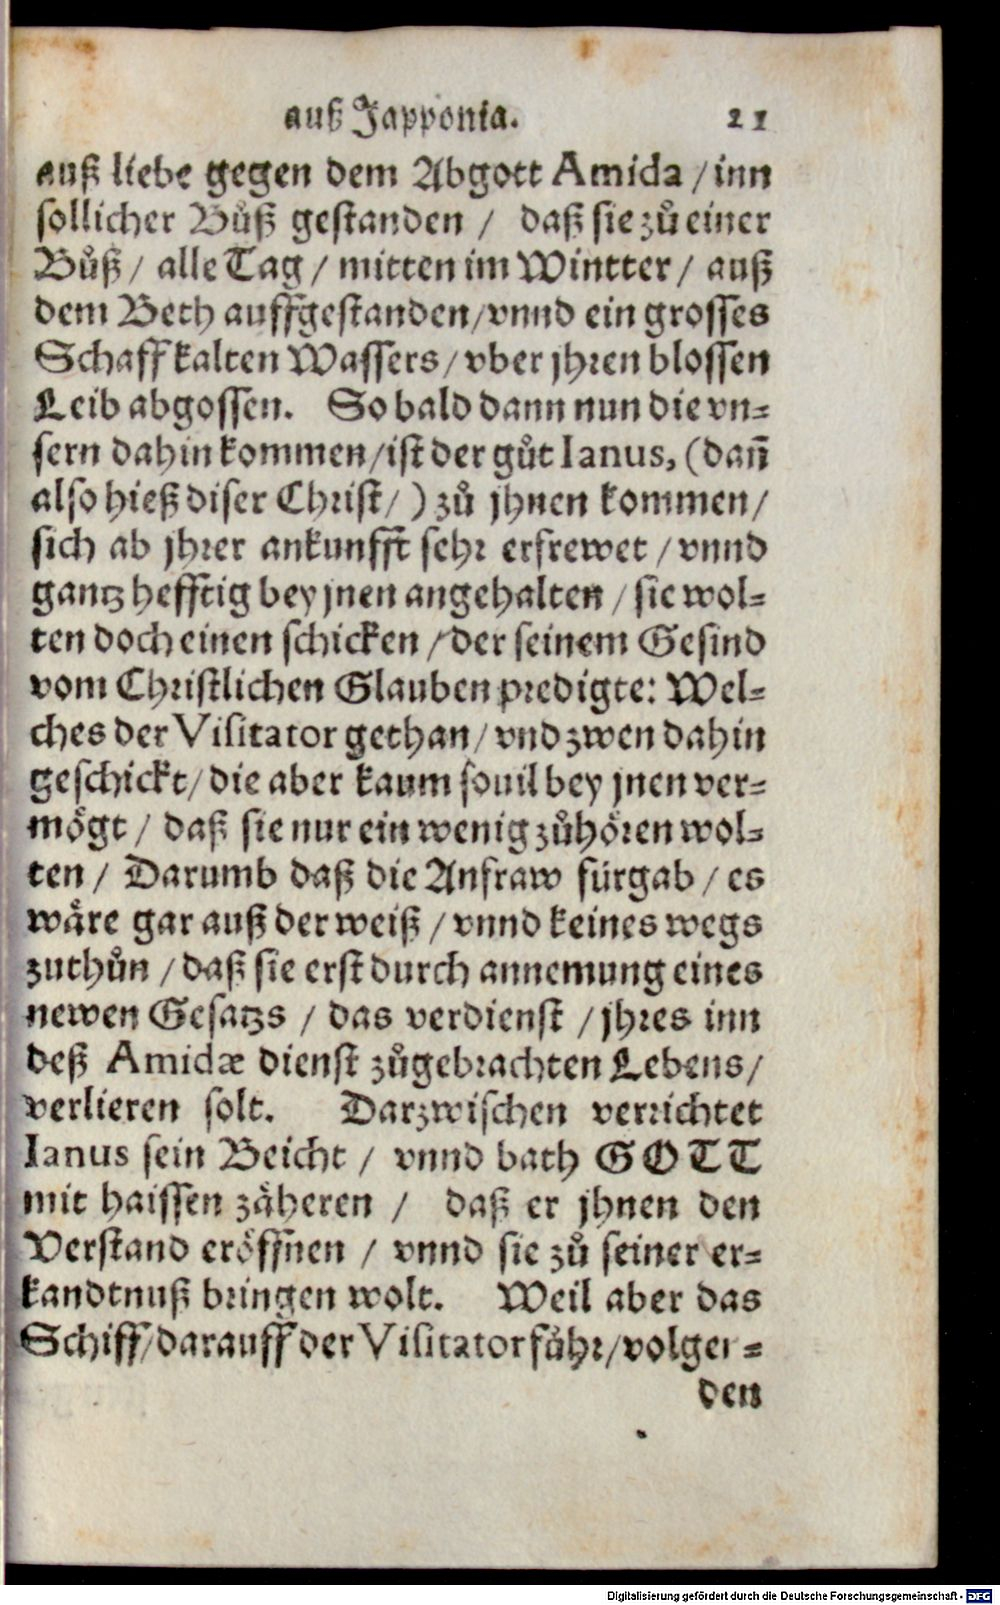 auß Japponia. 21
auß liebe gegen dem Abgott Amida / inn
sollicher Bůß gestanden / daß sie zů einer
Bůß / alle Tag / mitten im Wintter / auß
dem Beth auffgestanden / vnnd ein grosses
Schaff kalten Wassers / vber jhren blossen
Leib abgossen. So bald dann nun die vn⸗
sern dahin kommen / ist der gůt Ianus, (dañ
also hieß diser Christ / ) zů jhnen kommen /
sich ab jhrer ankunfft sehr erfrewet / vnnd
gantz hefftig bey jnen angehalten / sie wol⸗
ten doch einen schicken / der seinem Gesind
vom Christlichen Glauben predigte: Wel⸗
ches der Visitator gethan / vnd zwen dahin
geschickt / die aber kaum souil bey jnen ver⸗
mögt / daß sie nur ein wenig zůhören wol⸗
ten / Darumb daß die Anfraw fürgab / es
wäre gar auß der weiß / vnnd keines wegs
zuthůn / daß sie erst durch annemung eines
newen Gesatzs / das verdienst / jhres inn
deß Amidæ dienst zůgebrachten Lebens /
verlieren solt. Darzwischen verrichtet
Ianus sein Beicht / vnnd bath GOTT
mit haissen zäheren / daß er jhnen den
Verstand eröffnen / vnnd sie zů seiner er⸗
kandtnuß bringen wolt. Weil aber das
Schiff / darauff der Visitator fůhr / volgen⸗
den
Digitalisierung gefördert durch die Deutsche Forschungsgemeinschaft - DFG